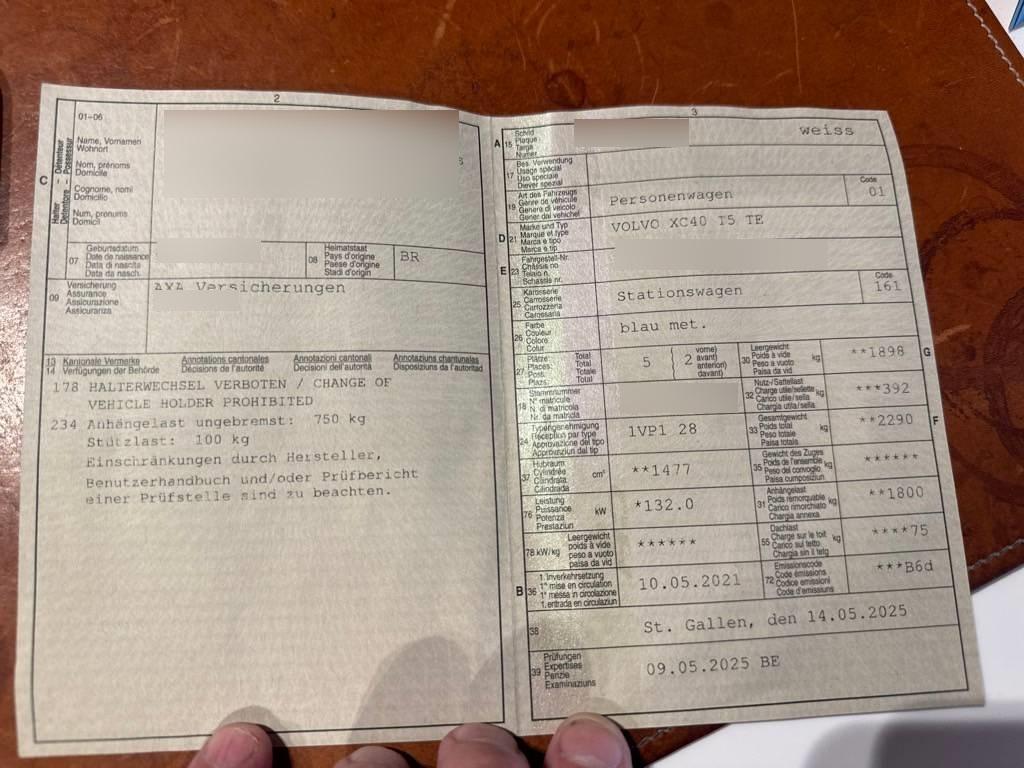 2
01-06
Name, Vornamen
Wohnort
Nom, prénoms
Domicile
Cognome, nomi
Domicilio
Num, prenums
Domicil
C
Halter – Détenteur
Detentore – Possessur
07
Geburtsdatum
Date de naissance
Data di nascita
Data da nasch.
08
Heimatstaat
Pays d'origine
Paese d'origine
Stadi d'origin
BR
09
Versicherung
Assurance
Assicurazione
Assicuranza
AXA Versicherungen
13
14
Kantonale Vermerke
Verfügungen der Behörde
Annotations cantonales
Décisions de l'autorité
Annotazioni cantonali
Decisioni dell'autorità
Annotaziuns chantunalas
Disposiziuns da l'autoritad
178 HALTERWECHSEL VERBOTEN / CHANGE OF
VEHICLE HOLDER PROHIBITED
234 Anhängelast ungebremst: 750 kg
Stützlast: 100 kg
Einschränkungen durch Hersteller,
Benutzerhandbuch und/oder Prüfbericht
einer Prüfstelle sind zu beachten.
3
A
15
Schild
Plaque
Targa
Numer
weiss
17
Bes. Verwendung
Usage spécial
Uso speciale
Diever spezial
19
Art des Fahrzeugs
Genre de véhicule
Genere di veicolo
Gener dal vehichel
Personenwagen
Code
01
D
21
Marke und Typ
Marque et type
Marca e tipo
Marca e tip
VOLVO XC40 T5 TE
E
23
Fahrgestell-Nr.
Châssis no
Telaio n.
Schassis nr.
25
Karosserie
Carrosserie
Carrozzeria
Carossaria
Stationswagen
Code
161
26
Farbe
Couleur
Colore
Colur
blau met.
27
Plätze
Places:
Posti
Plazs:
Total
Total
Totale
Total
5
2
vorne)
avant)
anteriori)
davant)
30
Leergewicht
Poids à vide
Peso a vuoto
Paisa da vid
kg
**1898
G
18
Stammnummer
N° matricule
N. di matricola
Nr. da matricla
32
Nutz-/Sattellast
Charge utile/sellette
Carico utile/sella
Chargia utila/sella
kg
***392
24
Typengenehmigung
Réception par type
Approvazione del tipo
Approvaziun dal tip
1VP1 28
33
Gesamtgewicht
Poids total
Peso totale
Paisa totala
kg
**2290
F
37
Hubraum
Cylindrée
Cilindrata
Cilindrada
cm³
**1477
35
Gewicht des Zuges
Poids de l'ensemble
Peso del convoglio
Paisa cumposiziun
kg
******
76
Leistung
Puissance
Potenza
Prestaziun
kW
*132.0
31
Anhängelast
Poids remorquable
Carico rimorchiato
Chargia annexa
kg
**1800
78 kW/kg
Leergewicht
poids à vide
peso a vuoto
paisa da vid
******
55
Dachlast
Charge sur le toit
Carico sul tetto
Chargia sin il tetg
kg
****75
B
36
1. Inverkehrsetzung
1re mise en circulation
1a messa in circolazione
1. entrada en circulaziun
10.05.2021
72
Emissionscode
Code émissions
Codice emissioni
Code d'emissiuns
***B6d
38
St. Gallen, den 14.05.2025
39
Prüfungen
Expertises
Perizie
Examinaziuns
09.05.2025 BE